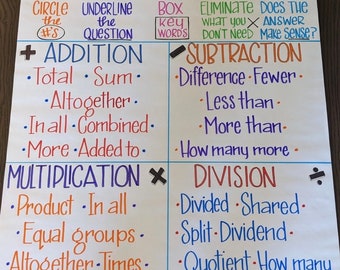 CIRCLE the #'s
UNDERLINE the QUESTION
BOX KEY WORDS
ELIMINATE WHAT YOU DON'T NEED
DOES THE ANSWER MAKE SENSE?
+ ADDITION
Total · Sum
· Altogether ·
· In all · Combined ·
· More · Added to ·
- SUBTRACTION
Difference · Fewer
· Less than ·
· More than ·
· How many more ·
MULTIPLICATION ×
· Product · In all ·
· Equal groups ·
Altogether · Times
DIVISION ÷
· Divided · Shared ·
· Split · Dividend ·
Quotient · How many